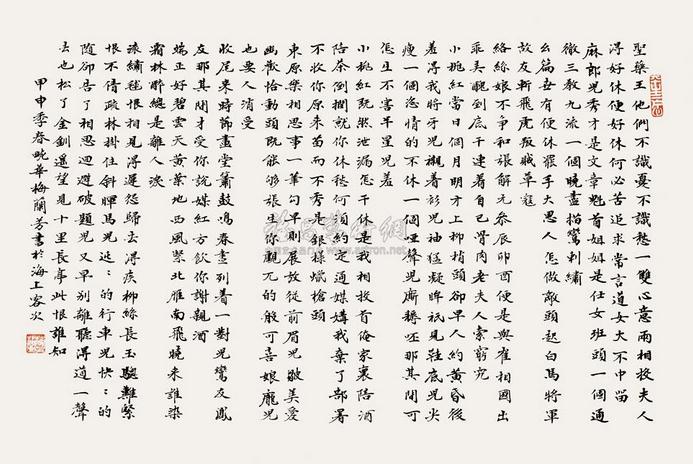 聖藥王他們不識憂不識愁一雙心意兩相投夫人
得好休便好休何必苦追求常言道女大不中留
麻郎兒秀才是文章魁首姐姐是仕女班頭一個通
徹三教九流一個曉盡描鸞刺繡
么篇若有便休罷手大恩人怎做敵頭起白馬將軍
故友斬飛虎叛賊草寇
絡絲娘不爭和張解元參辰卯酉便是與崔相國出
乖弄醜到底干連着自己骨肉老夫人索窮究
小桃紅當日個月明才上柳梢頭卻早人約黃昏後
羞得我將牙兒襯着衫兒袖猛凝眸衹見鞋底兒尖
瘦一個恣情的不休一個啞聲兒廝耨呸那其間可
怎生不害半星兒羞
小桃紅既然泄漏怎干休是我相投首俺家裏陪酒
陪茶倒撋就你休愁何須約定通媒媾我棄了部署
不收你原來苗而不秀是銀樣蠟槍頭
東原樂相思事一筆勾早則展放從前眉兒皺美愛
幽歡恰動頭既能够張生你覷兀的般可喜娘龐兒
也要人消受
收尾來時節畫堂簫鼓鳴春晝列着一對兒鸞友鳳
友那其間才受你說媒紅方飲你謝親酒
端正好碧雲天黄葉地西風緊北雁南飛曉來誰染
霜林醉總是離人淚
滚繡毬恨相見得遲怨歸去得疾柳絲長玉驄難繫
恨不倩疏林掛住斜暉馬兒迍迍的行車兒快快的
隨卻告了相思迴避破題兒又早別離聽得道一聲
去也松了金釧遥望見十里長亭此恨誰知
甲申季春畹華梅蘭芳書於海上客次